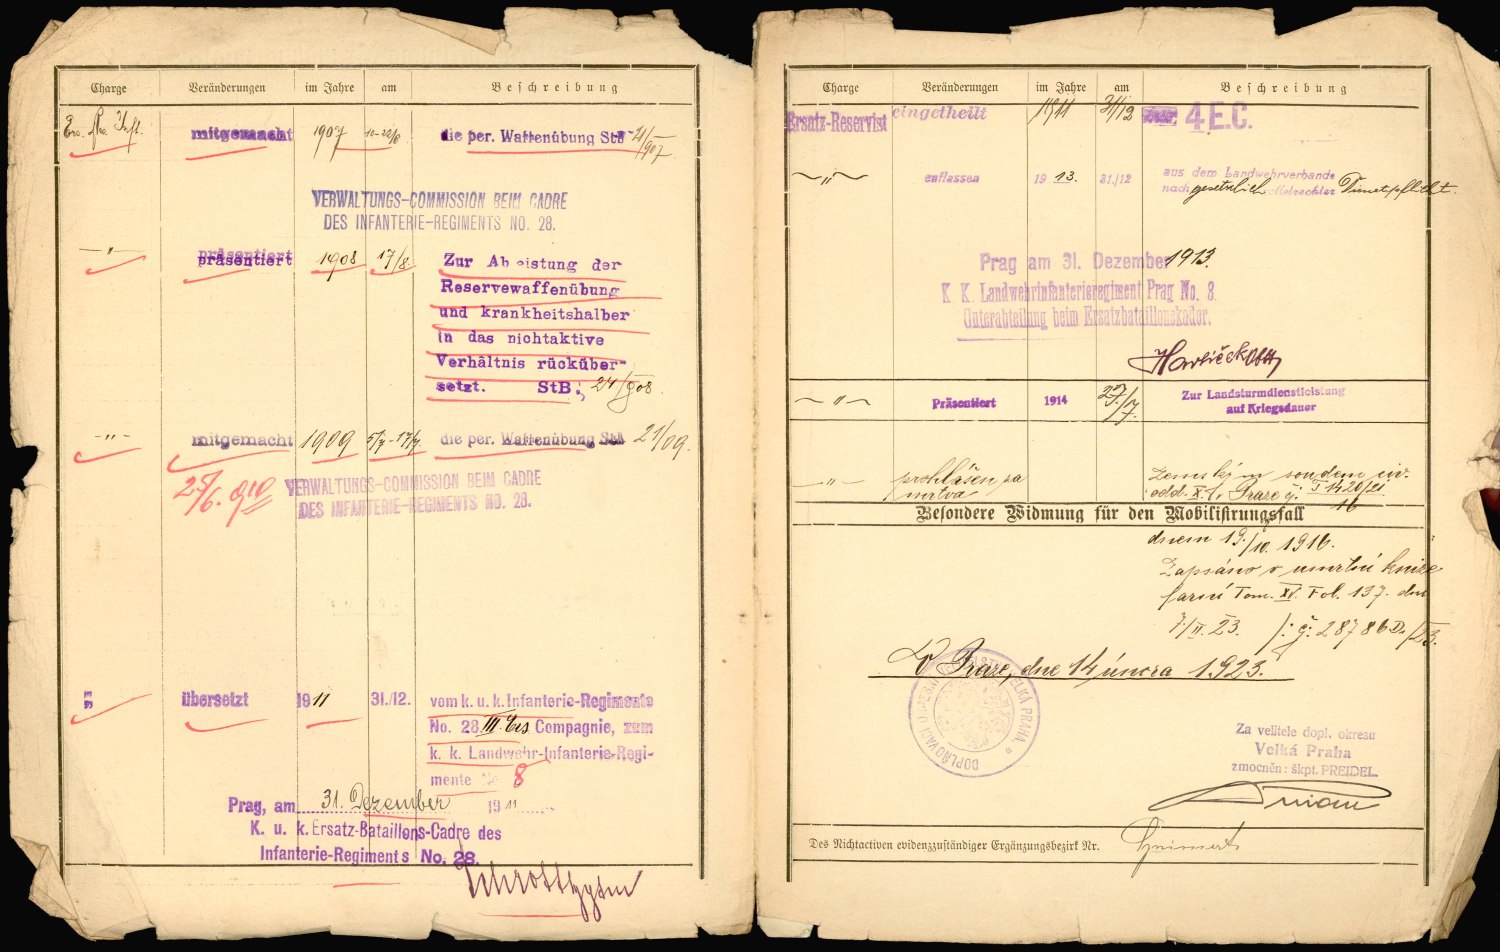 Charge Veränderungen im Jahre am Beschreibung
Ers. Res. Inft. mitgemacht 1907 10-22/6 die per. Waffenübung StB 21/907
VERWALTUNGS-COMMISSION BEIM CADRE
DES INFANTERIE-REGIMENTS NO. 28.
—"— präsentiert 1908 17/8 Zur Ableistung der
Reservewaffenübung
und krankheitshalber
in das nichtaktive
Verhältnis rücküber-
setzt. StB; 24/908.
—"— mitgemacht 1909 5/7-17/7 die per. Waffenübung StB 21/09.
25/6. 910
VERWALTUNGS-COMMISSION BEIM CADRE
DES INFANTERIE-REGIMENTS NO. 28.
" übersetzt 1911 31./12. vom k. u. k. Infanterie-Regimente
No. 28 III. Ers Compagnie, zum
k. k. Landwehr-Infanterie-Regi-
mente No 8
Prag, am 31. Dezember 1911
K. u. k. Ersatz-Bataillons-Cadre des
Infanterie-Regiments No. 28.
Charge Veränderungen im Jahre am Beschreibung
Ersatz-Reservist eingetheilt 1911 31/12 zur 4 E.C.
—"— entlassen 1913. 31./12 aus dem Landwehrverbande
nach gesetzlich Dienstpflicht
Prag am 31. Dezember 1913.
K. K. Landwehrinfanterieregiment Prag No. 8.
Unterabteilung beim Ersatzbataillonskader.
Havlíček
—"— Präsentiert 1914 27/7. Zur Landsturmdienstleistung
auf Kriegsdauer
—"— prohlášen za
mrtva
zemským soudem civ.
odd. X. v Praze č. T 1420/21
16
Besondere Widmung für den Mobilisirungsfall
dnem 19./10. 1916.
Zapsáno v úmrtní knize
farní Tom. XV. Fol. 137. dne
7/II. 23. /: č: 28786 D./23.
V Praze, dne 14 února 1923.
Za velitele dopl. okresu
Velká Praha
zmocněn: škpt. PREIDEL
Des Nichtactiven evidenzzuständiger Ergänzungsbezirk Nr.